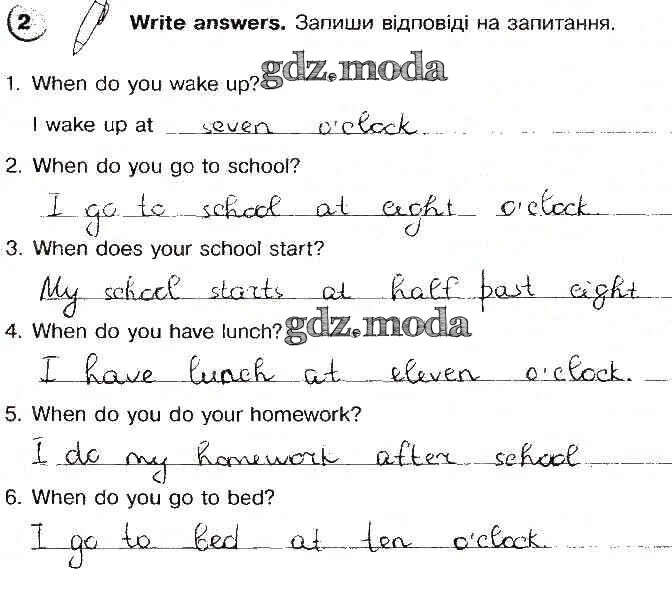 2 Write answers. Запиши відповіді на запитання.
gdz.moda
1. When do you wake up?
I wake up at seven o'clock
2. When do you go to school?
I go to school at eight o'clock.
3. When does your school start?
My school starts at half past eight
4. When do you have lunch?
gdz.moda
I have lunch at eleven o'clock.
5. When do you do your homework?
I do my homework after school
6. When do you go to bed?
I go to bed at ten o'clock.